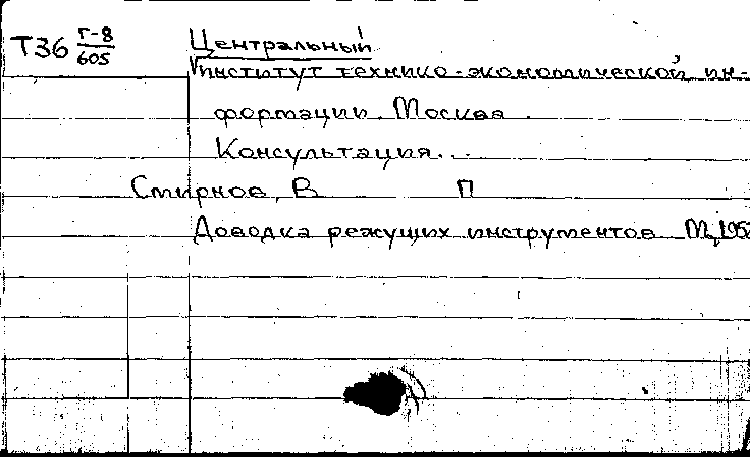 Т36 Т-8/605 Центральный
институт технико-экономической ин-
формации. Москва.
Консультация...
Смирнов, В П
Доводка режущих инструментов М,195